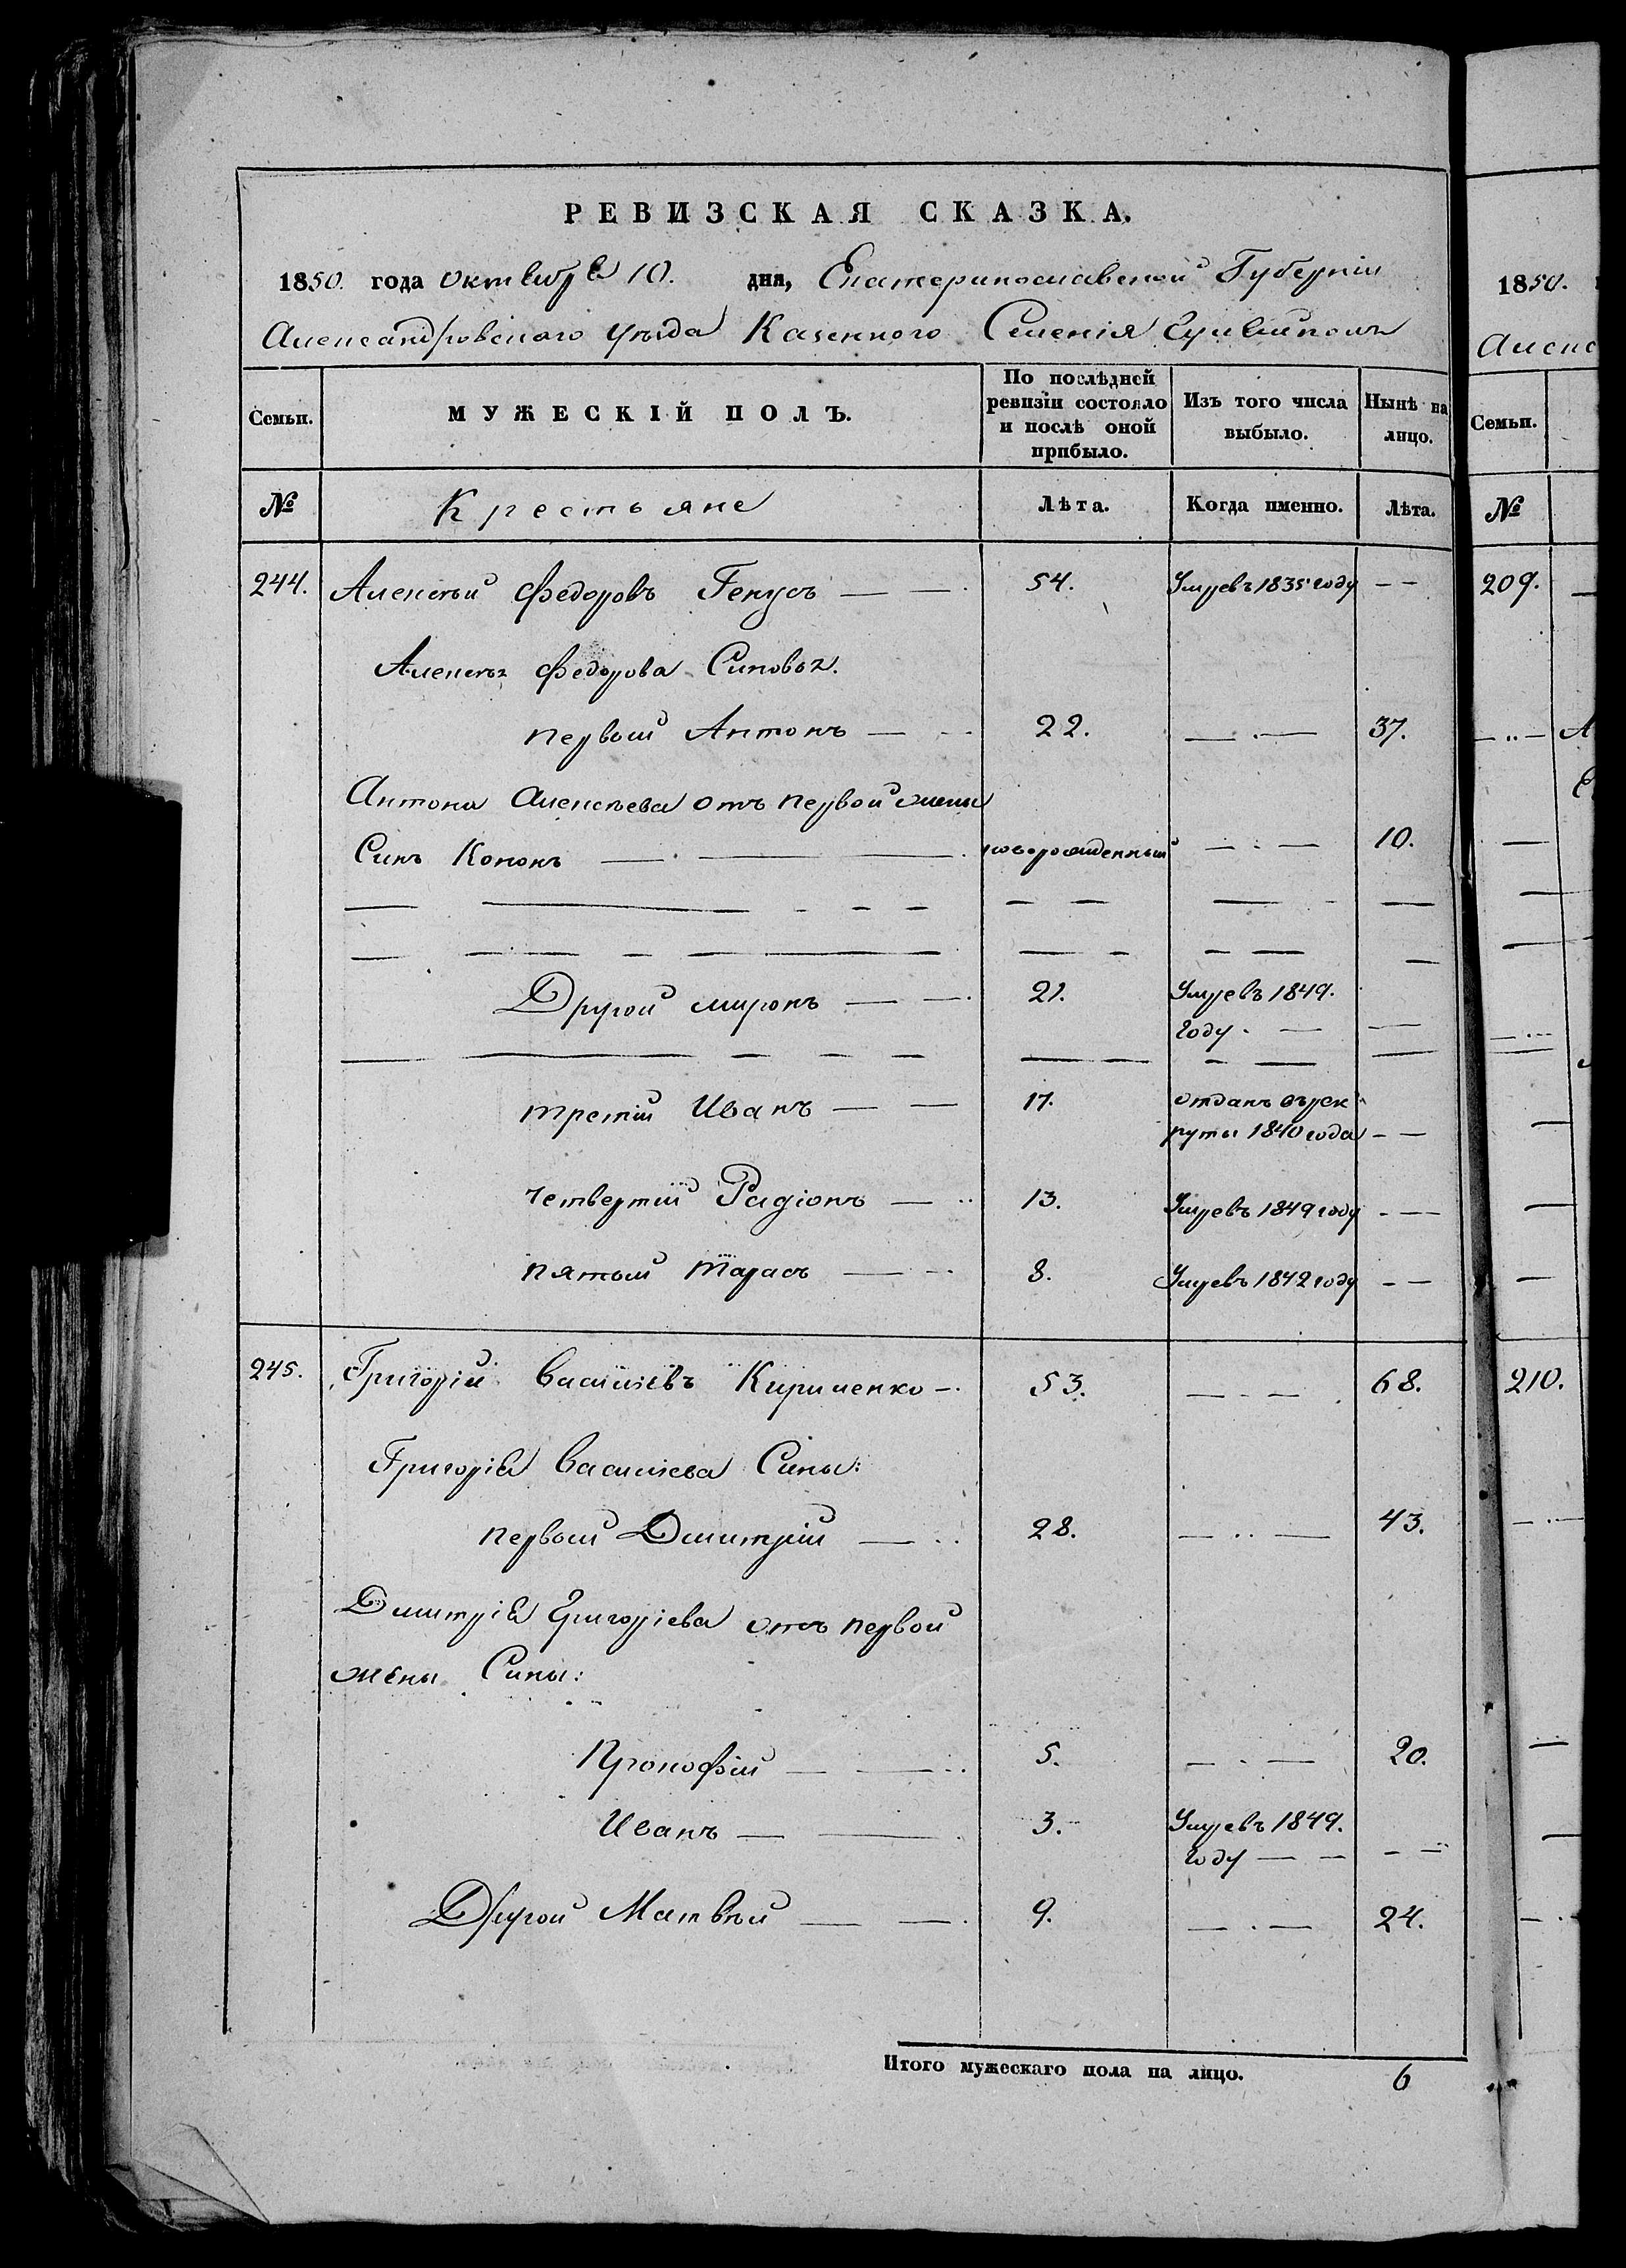 РЕВИЗСКАЯ СКАЗКА.
1850. года Октября 10. дня, Екатеринославской Губерніи
Александровского уѣзда Казенного Селенія Гуляйполь
Семьи. МУЖЕСКІЙ ПОЛЪ. По послѣдней ревизіи состояло и послѣ оной прибыло. Изъ того числа выбыло. Нынѣ на лицо.
№ Крестьяне Лѣта. Когда именно. Лѣта.
244. Алексѣй Федоровъ Генусъ 54. Умревъ 1835 году
Алексѣя Федорова Синовья.
первый Антонъ 22. 37.
Антона Алексѣева отъ первой жены
Синъ Кононъ новорожденный 10.
Другой миронъ 21. Умревъ 1849.
году
третій Иванъ 17. отданъ върек
руты 1840 года
четвертій Радіонъ 13. Умревъ 1849 году
пятый Тарасъ 8. Умревъ 1842 году
245. Григорій Василіевъ Кириленко 53. 68.
Григорія Василіева Сины:
первый Дмитрій 28. 43.
Дмитрія Григоріева отъ первой
жены Сины:
Прокофій 5. 20.
Иванъ 3. Умревъ 1849.
году
Другой Матвѣй 9. 24.
Итого мужескаго пола на лицо. 6
1850.
Алекс
Семьи.
№
209.
210.